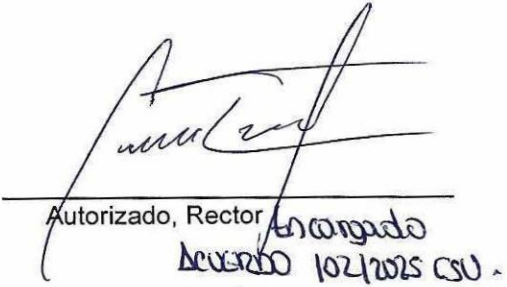 Autorizado, Rector Encargado
Acuerdo 102/2025 CSU.